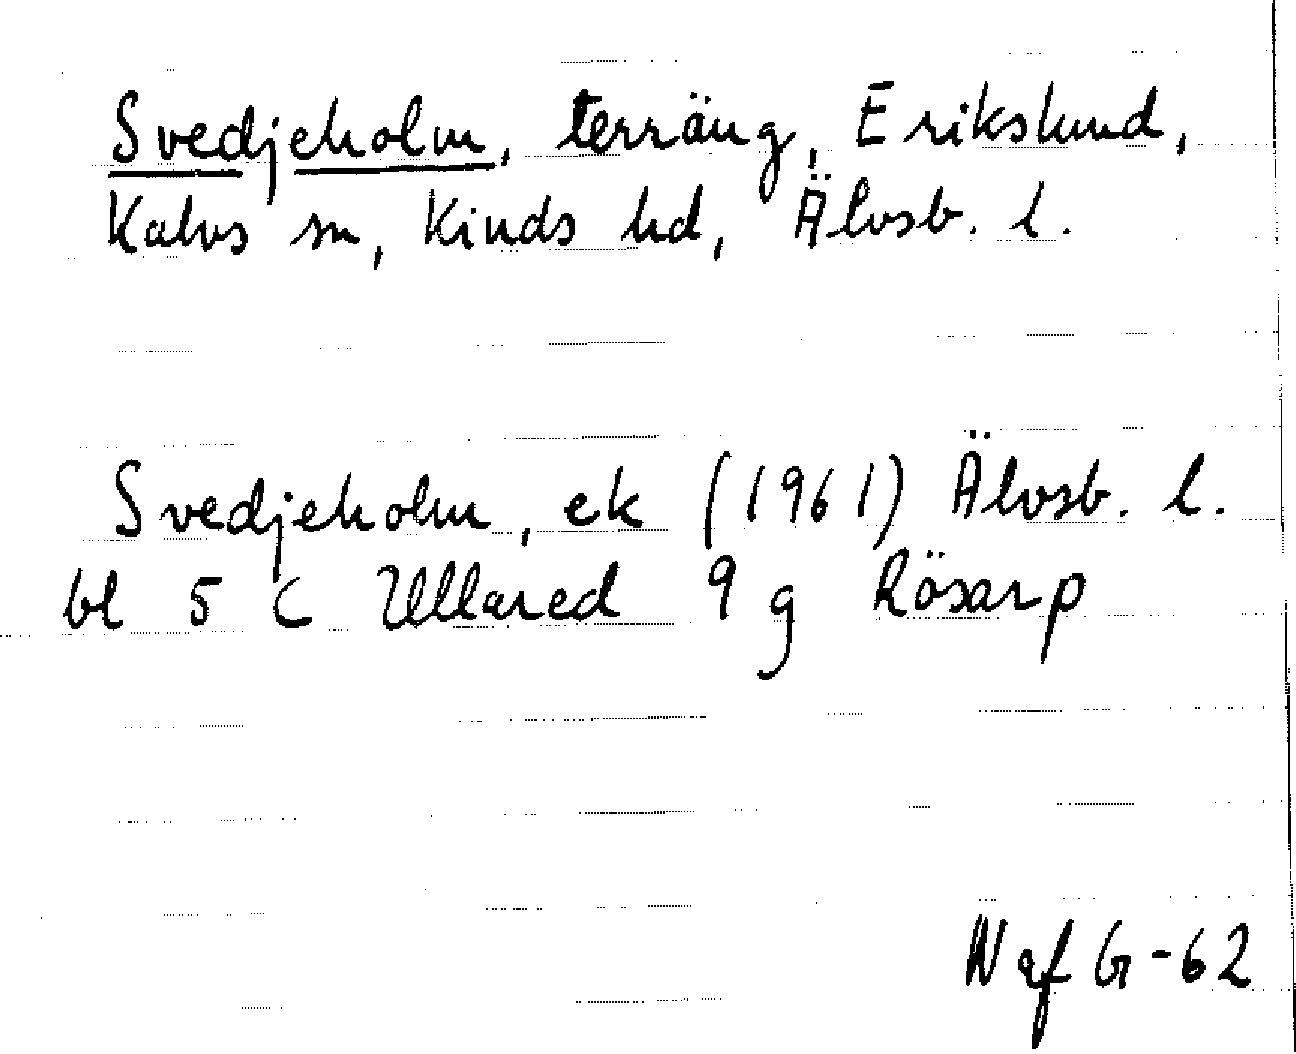 Svedjeholm, terräng, Erikslund,
Kalvs sn, Kinds hd, Älvsb. l.
Svedjeholm, ek (1961) Älvsb. l.
bl 5 C Ullared 9 g Rösarp
N af G-62